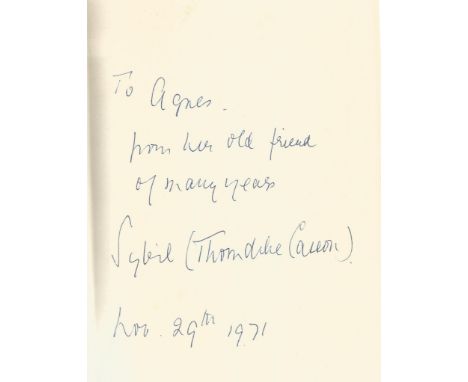 To Agnes.
from her old friend
of many years
Sybil (Thorndike Casson).
Nov. 29th 1971